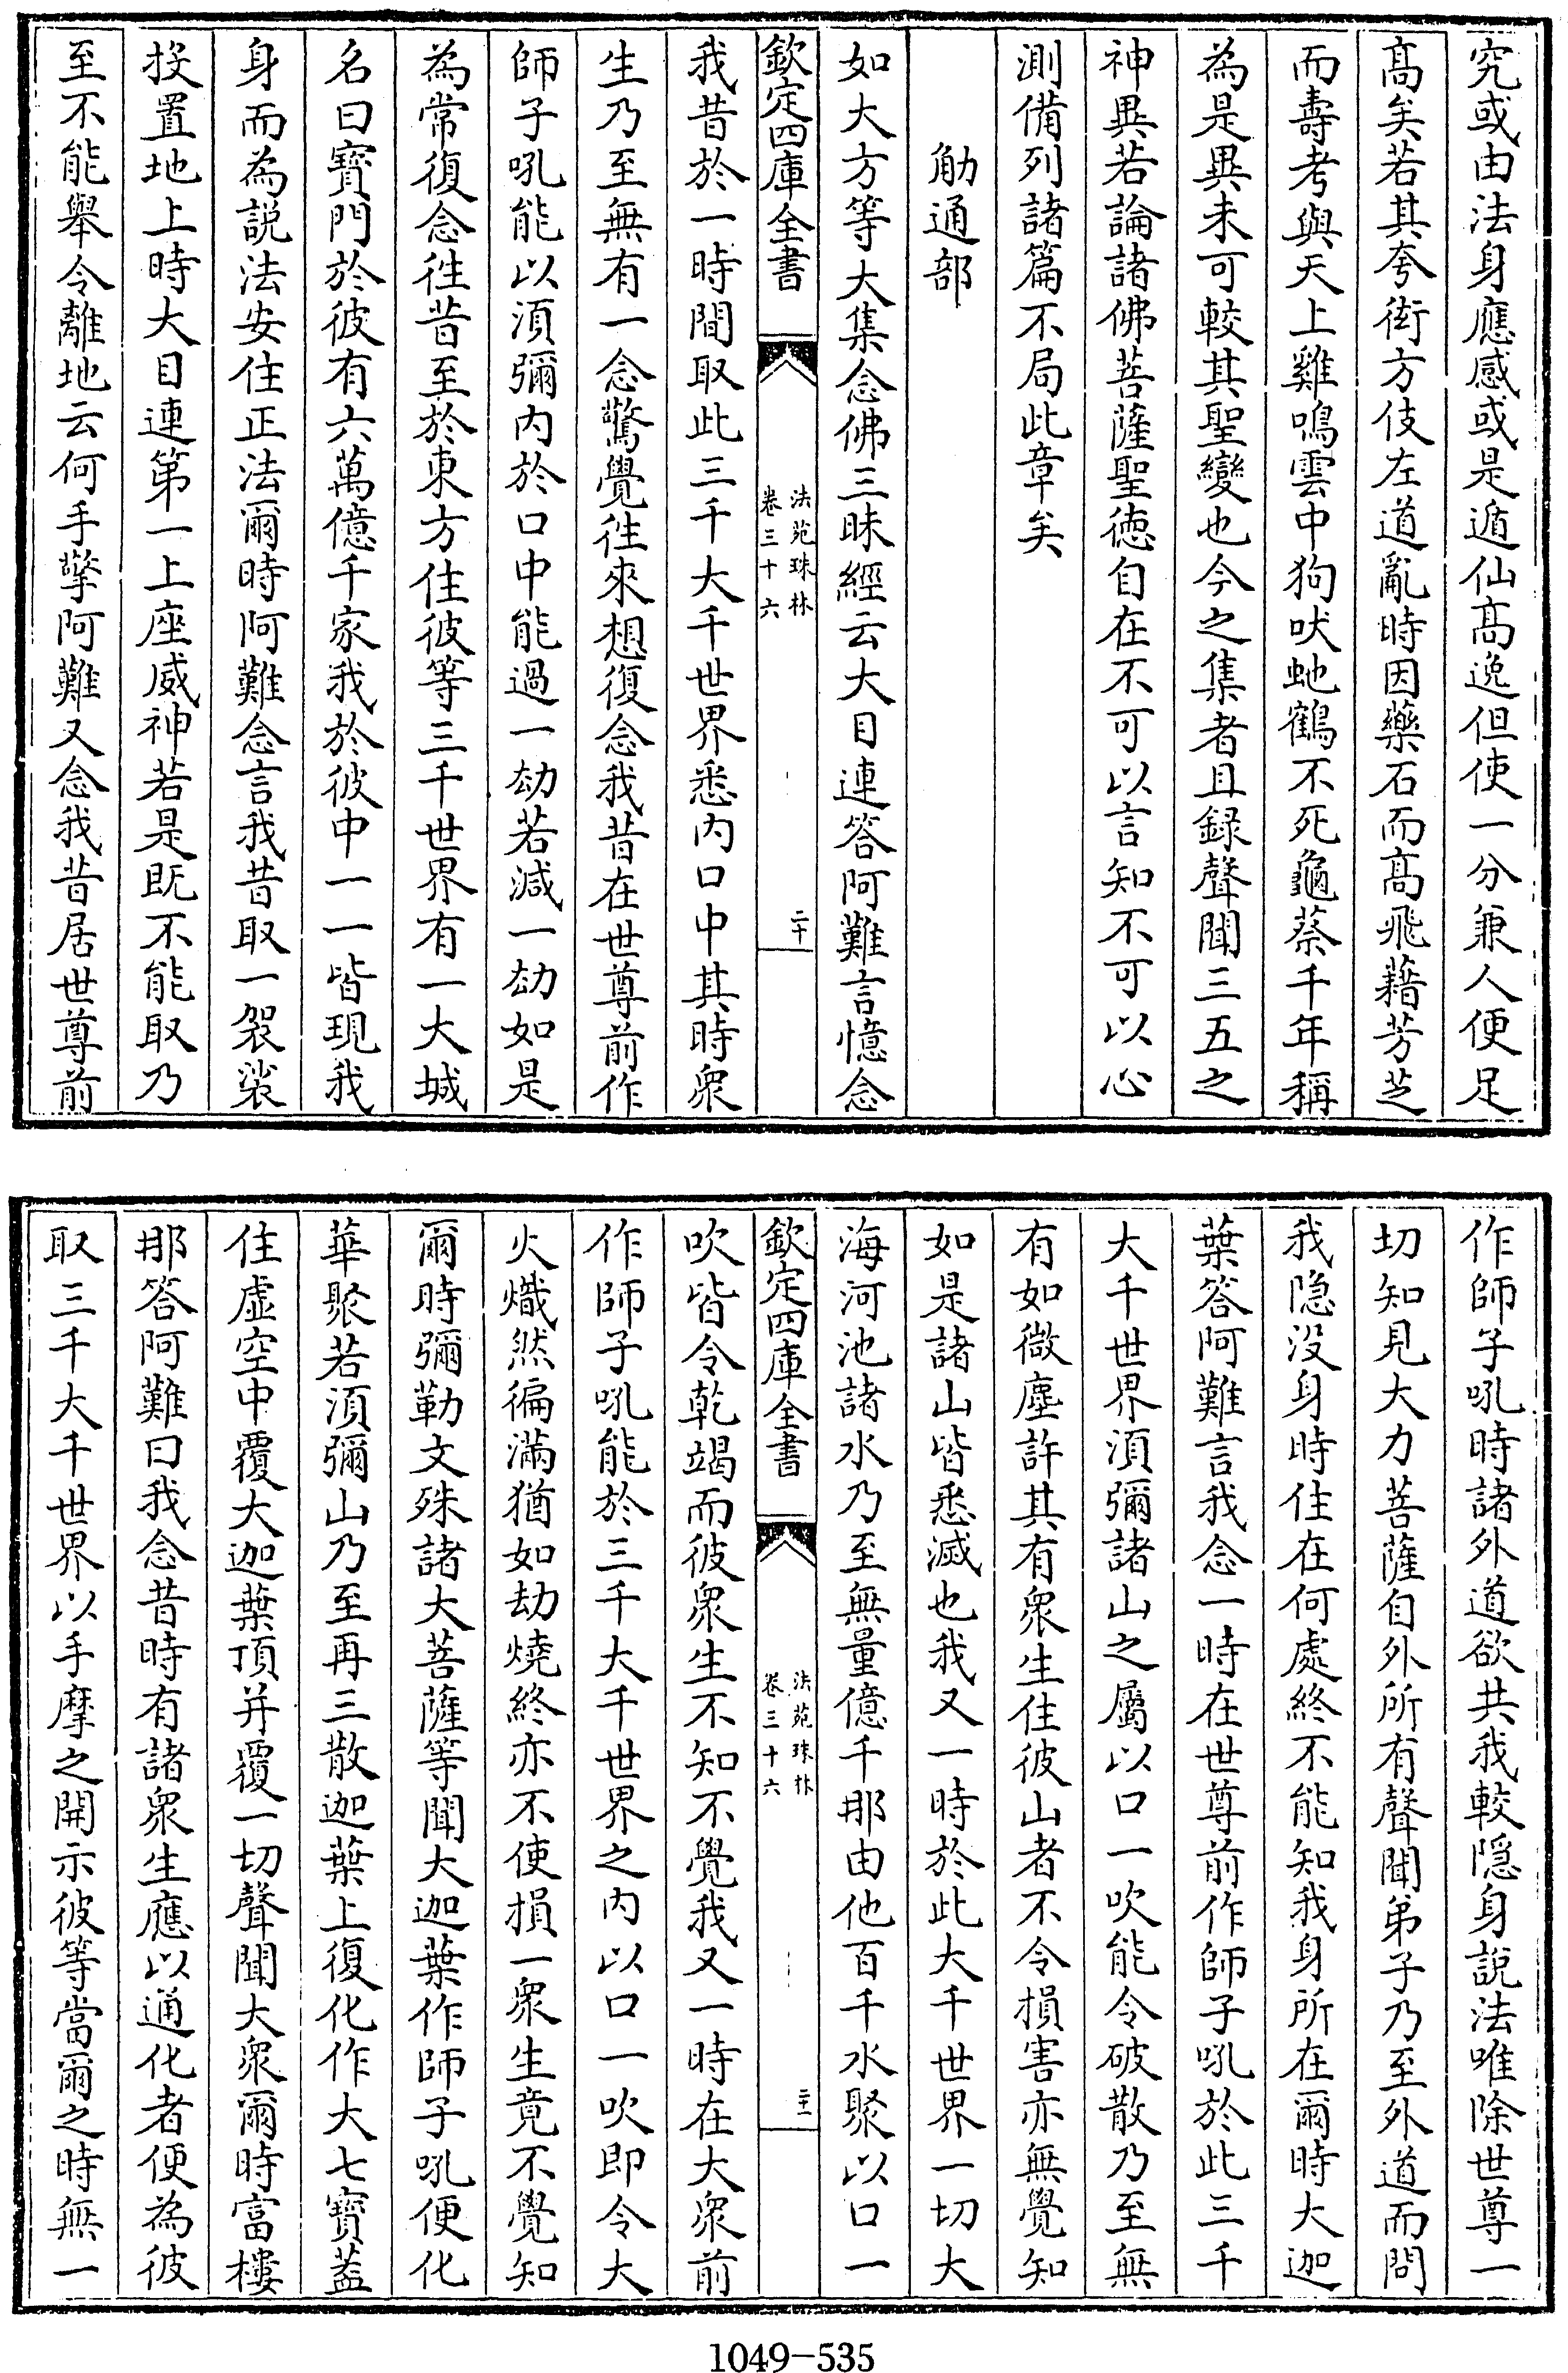 究或由法身應感或是遁仙髙逸但使一分兼人便足
髙矣若其夸衒方伎左道亂時因藥石而髙飛藉芳芝
而壽考與天上雞鳴雲中狗吠虵鶴不死龜蔡千年稱
為是異未可較其聖變也今之集者且録聲聞三五之
神異若論諸佛菩薩聖徳自在不可以言知不可以心
測備列諸篇不局此章矣
觔通部
如大方等大集念佛三昧經云大目連答阿難言憶念
欽定四庫全書
法苑珠林
卷三十六
二十
我昔於一時間取此三千大千世界悉内口中其時衆
生乃至無有一念驚覺徃來想復念我昔在世尊前作
師子吼能以湏彌内於口中能過一劫若減一劫如是
為常復念徃昔至於東方住彼等三千世界有一大城
名曰寳門於彼有六萬億千家我於彼中一一皆現我
身而為説法安住正法爾時阿難念言我昔取一袈裟
投置地上時大目連第一上座威神若是既不能取乃
至不能舉令離地云何手擎阿難又念我昔居世尊前
作師子吼時諸外道欲共我較隠身説法唯除世尊一
切知見大力菩薩自外所有聲聞弟子乃至外道而問
我隠没身時住在何處終不能知我身所在爾時大迦
葉答阿難言我念一時在世尊前作師子吼於此三千
大千世界湏彌諸山之屬以口一吹能令破散乃至無
有如微塵許其有衆生住彼山者不令損害亦無覺知
如是諸山皆悉滅也我又一時於此大千世界一切大
海河池諸水乃至無量億千那由他百千水聚以口一
欽定四庫全書
法苑珠林
卷三十六
二十一
吹皆令乾竭而彼衆生不知不覺我又一時在大衆前
作師子吼能於三千大千世界之内以口一吹即令大
火熾然徧滿猶如劫燒終亦不使損一衆生竟不覺知
爾時彌勒文殊諸大菩薩等聞大迦葉作師子吼便化
華聚若湏彌山乃至再三散迦葉上復化作大七寳葢
住虛空中覆大迦葉頂并覆一切聲聞大衆爾時富樓
那答阿難曰我念昔時有諸衆生應以通化者便為彼
取三千大千世界以手摩之開示彼等當爾之時無一
1049-535